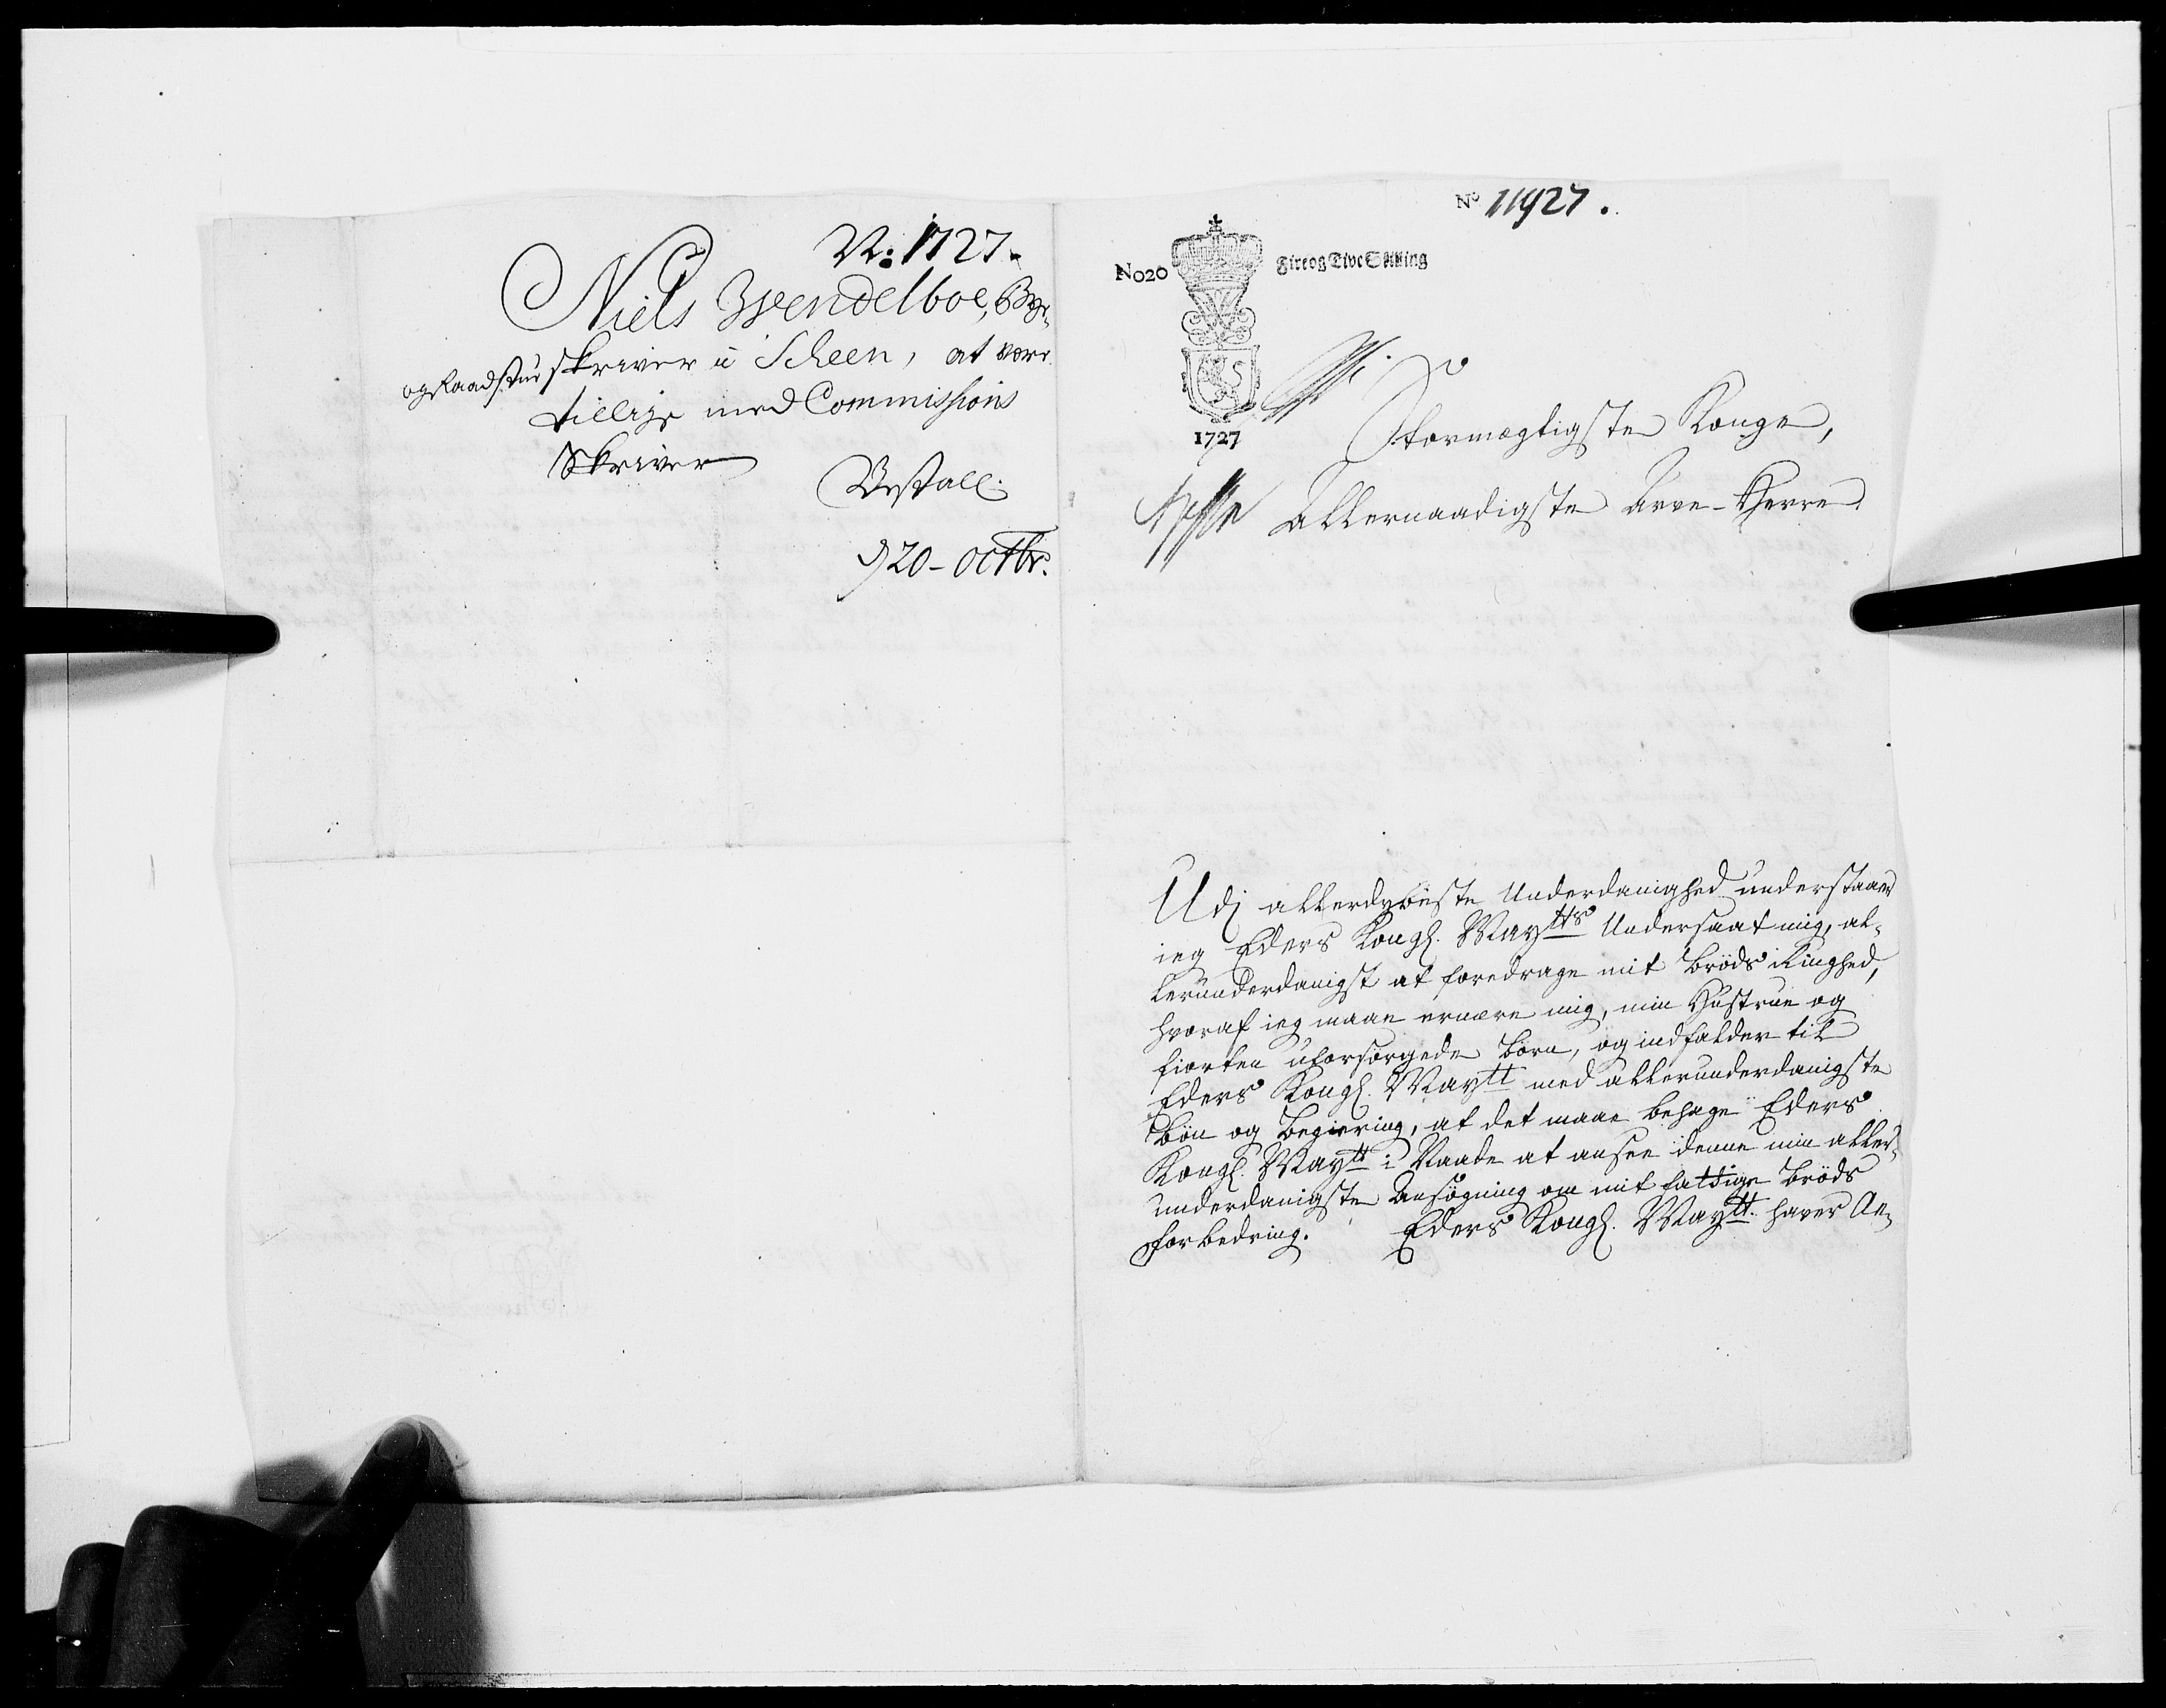 N: 1727.
Niels Wendelboe, Bye-
og Raadstue skriver i Scheen, at være
tillige med Commissions
Skriver
Bestall.
d 20 - Octbr.
No 11927.
No20
Fire og Tive Skilling
1727
Stormægtigste Konge,
Allernaadigste Arve-Herre
Udj allerdybeste Underdanighed understaaer
ieg Eders Kongl. Maytts Undersaat mig, al-
lerunderdanigst at foredrage mit brøds Ringhed,
hvoraf ieg maae ernære mig, min Hustrue og
fiorten uforsørgede børn, og indfalder til
Eders Kongl. Maytt med allerunderdanigste
Bøn og begiering, at det maae behage Eders
Kongl. Maytt i Naade at ansee denne min aller-
underdanigste Ansøgning om mit fattige brøds
forbedring. Eders Kongl. Maytt. haver An-